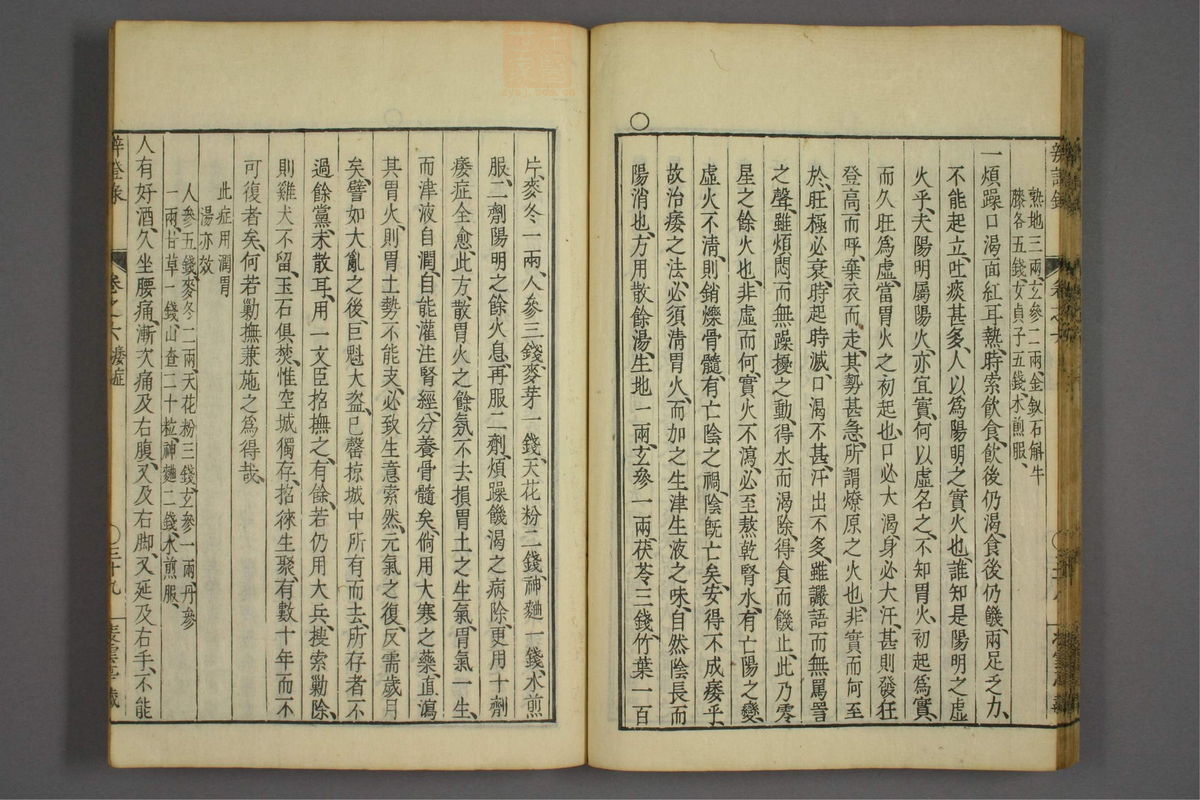 熟地三兩、玄參二兩、金釵石斛牛
膝各五錢、女貞子五錢、水煎服、
一煩躁口渴面紅耳熱、時索飲食、飲後仍渴、食後仍饑、兩足乏力、
不能起立、吐痰甚多、人以爲陽明之實火也、誰知是陽明之虛
火乎、夫陽明屬陽火、亦宜實、何以虛名之、不知胃火、初起爲實、
而久旺爲虛、當胃火之初起也、口必大渴、身必大汗、甚則發狂
登高而呼、棄衣而走、其勢甚急、所謂燎原之火也、非實而何、至
於旺極必衰、時起時滅、口渴不甚、汗出不多、雖讝語而無罵詈
之聲、雖煩悶而無躁擾之動、得水而渴除、得食而饑止、此乃零
星之餘火也、非虛而何、實火不瀉、必至熬乾腎水、有亡陽之變、
虛火不淸、則銷爍骨髓、有亡陰之禍、陰旣亡矣、安得不成痿乎、
故治痿之法、必須淸胃火、而加之生津生液之味、自然陰長而
陽消也、方用散餘湯、生地一兩、玄參一兩、茯苓三錢、竹葉一百
片、麥冬一兩、人參三錢、麥芽一錢、天花粉二錢、神麯一錢、水煎
服、二劑陽明之餘火息、再服二劑、煩躁饑渴之病除、更用十劑
痿症全愈、此方、散胃火之餘氛、不去損胃土之生氣、胃氣一生、
而津液自潤、自能灌注腎經、分養骨髓矣、倘用大寒之藥、直瀉
其胃火、則胃土勢不能支、必致生意索然、元氣之復、反需歲月
矣、譬如大亂之後、巨魁大盜、已罄掠城中所有而去、所存者不
過餘黨未散耳、用一文臣招撫之、有餘、若仍用大兵、搜索勦除、
則雞犬不留、玉石俱焚、惟空城獨存、招徠生聚、有數十年而不
可復者矣、何若勦撫兼施之爲得哉、
此症用潤胃
湯亦效
人參五錢、麥冬二兩、天花粉三錢、玄參一兩、丹參
一兩、甘草一錢、山查二十粒、神麯二錢、水煎服、
人有好酒、久坐腰痛、漸次痛及右腹、又及右脚、又延及右手、不能
辨證彔 卷之六 痿症 三十九